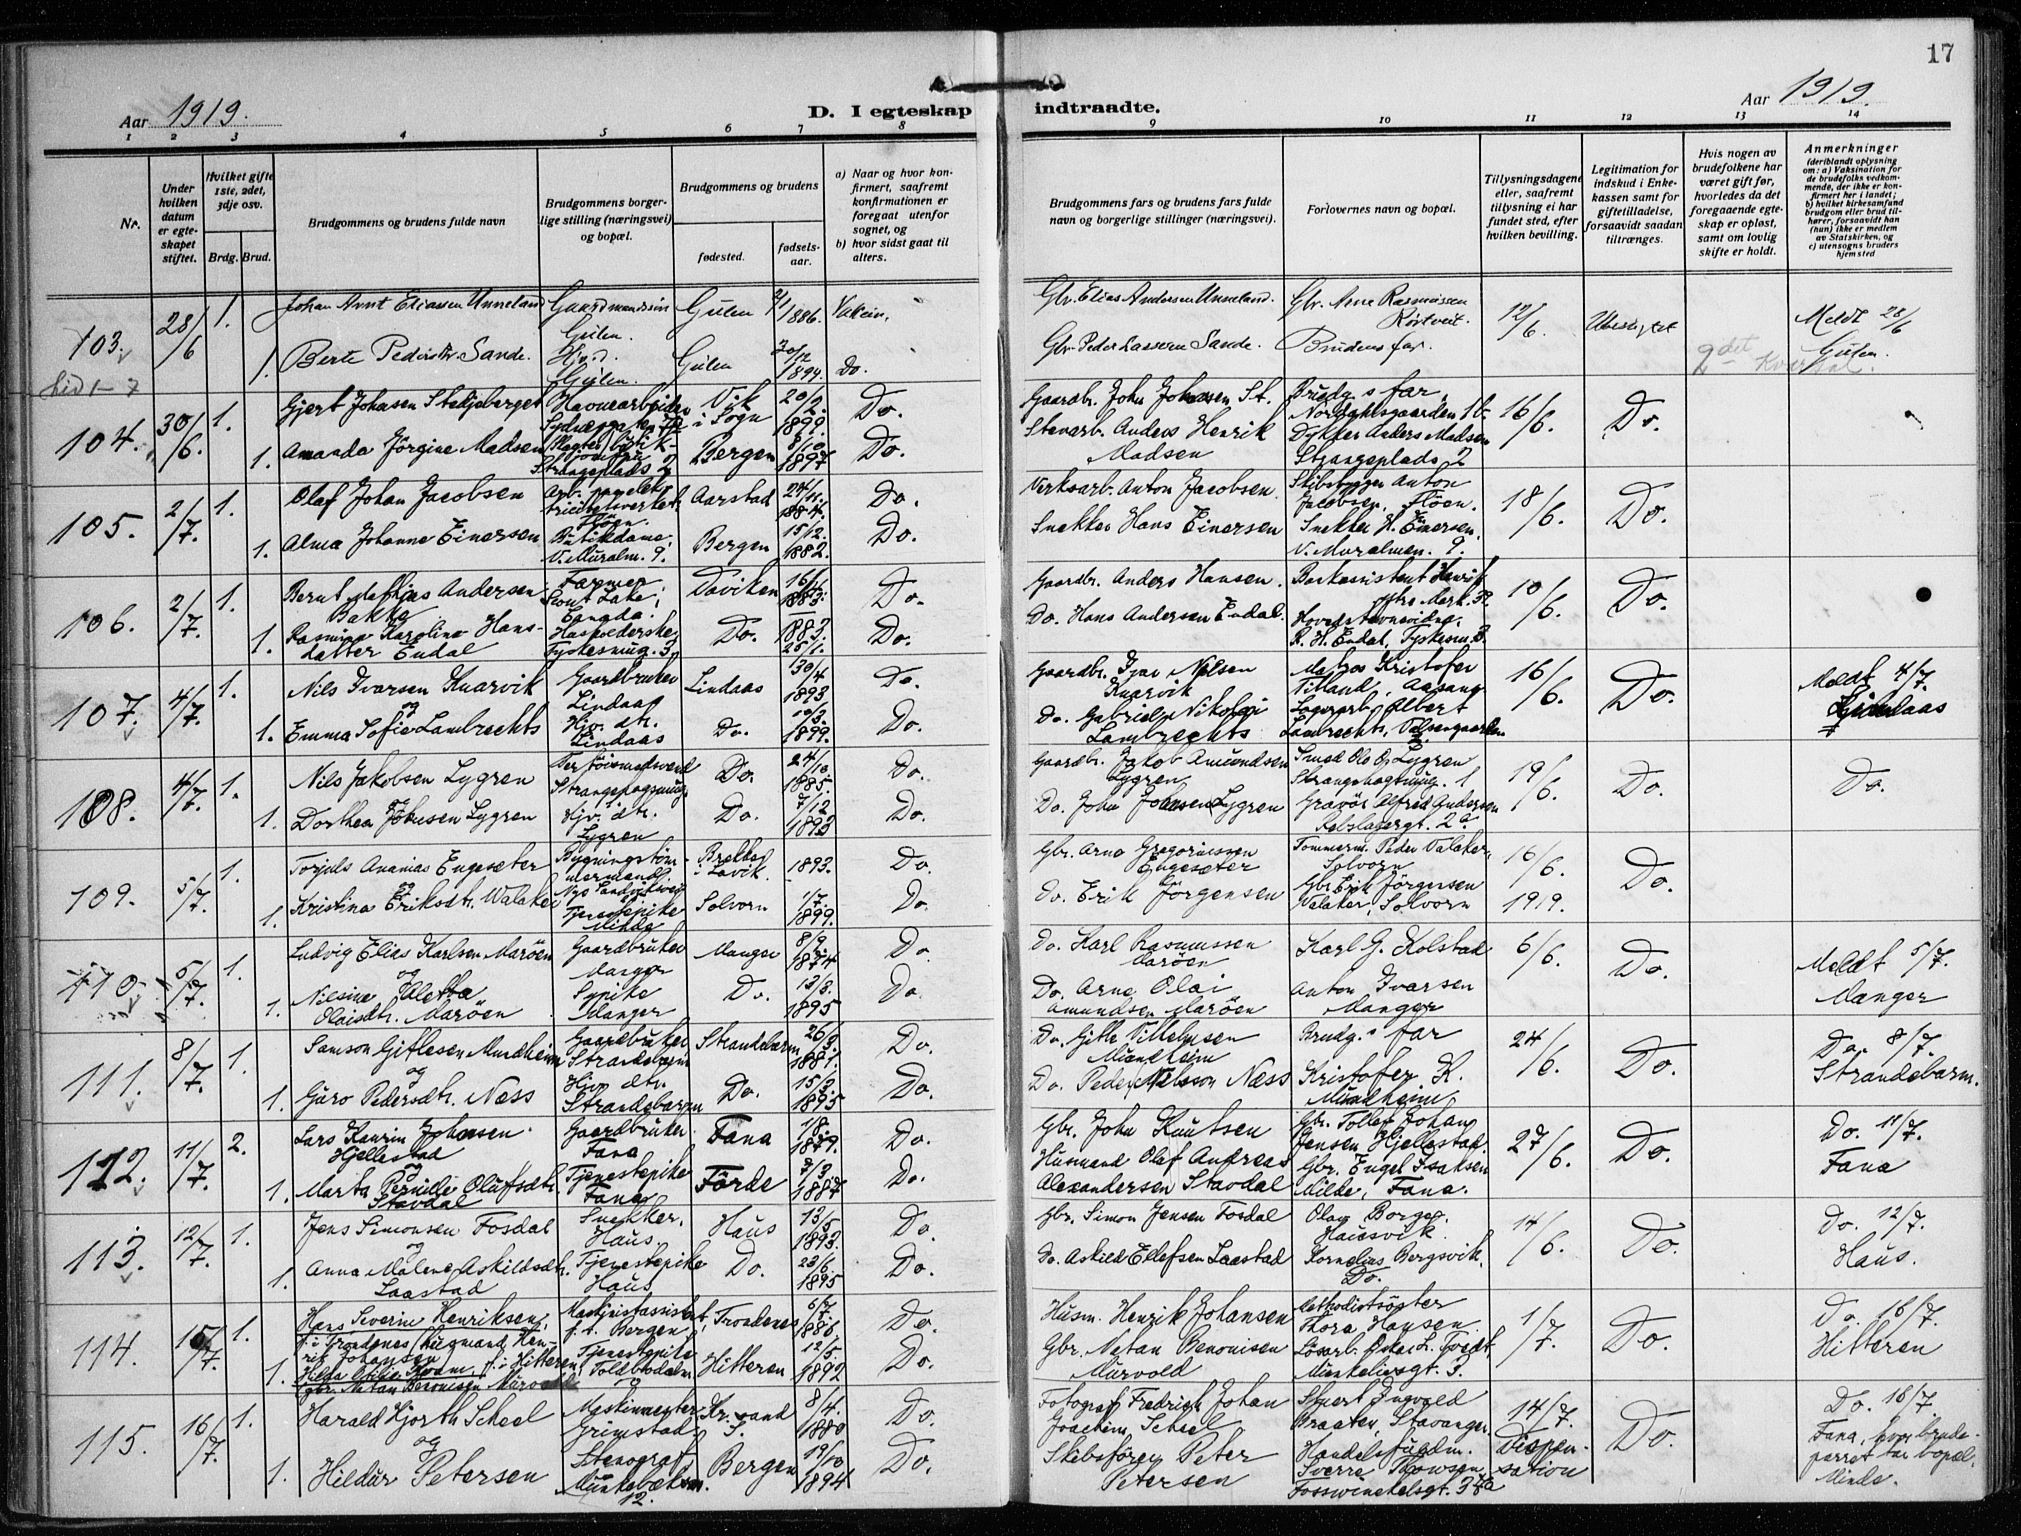 17
Aar 1919.
D. I egteskap indtraadte.
Aar 1919.
1 2 3 4 5 6 7 8 9 10 11 12 13 14
Nr.
Under hvilken datum er egteskapet stiftet.
Hvilket gifte 1ste, 2det, 3dje osv.
Brdg. Brud.
Brudgommens og brudens fulde navn
Brudgommens borgerlige stilling (næringsvei) og bopæl.
Brudgommens og brudens
fødested.
fødselsaar.
a) Naar og hvor konfirmert, saafremt konfirmationen er foregaat utenfor sognet, og
b) hvor sidst gaat til alters.
Brudgommens fars og brudens fars fulde navn og borgerlige stillinger (næringsvei).
Forlovernes navn og bopæl.
Tillysningsdagene eller, saafremt tillysning ei har fundet sted, efter hvilken bevilling.
Legitimation for indskud i Enkekassen samt for giftetilladelse, forsaavidt saadan tiltrænges.
Hvis nogen av brudefolkene har været gift før, hvorledes da det foregaaende egteskap er opløst, samt om lovlig skifte er holdt.
Anmerkninger
(deriblandt oplysning om: a) Vaksination for de brudefolks vedkommende, der ikke er konfirmert her i landet; b) hvilket kirkesamfund brudgom eller brud tilhører, forsaavidt han (hun) ikke er medlem av Statskirken, og c) utensogns bruders hjemsted
103. 28/6 1. Johan Arnt Eliassen Unneland Gaardmandssøn Gulen. Gulen 2/1 1886. Gbr. Elias Andersen Unneland. Gbr. Arne Rasmussen 12/6. Ubesigtet Meldt 28/6 Gulen.
1. Berte Pedersdtr. Sande. Gulen. Gulen 20/12 1894. Do. Gbr. Peder Lassesen Sande. Brudens far. 2det Kvartal.
104. 30/6. 1. Gjert Johnsen Havnearbeider Vik i Sogn 20/2. 1899. Do. Gaardbr. John Johnsen St. Brudg.s far, Nordahlsgaarden 1b 16/6. Do.
1. Amanda Jörgine Madsen Strangeplads 2 Bergen 8/10 1897 Do. Stenarb. Anders Henrik Madsen Dykker Anders Madsen Strangeplads 2
105. 2/7. 1. Olaf Johan Jacobsen Aarstad 24/11. 1884. Do. Verksarb. Anton Jacobsen. Skibsbygger Anton Jacobsen, Flöen. 18/6. Do.
1. Alma Johanne Einersen Butikdame, V. Muralm. 9. Bergen 15/2. 1882. Do. Snekker Hans Einersen Snekker H. Einersen. V. Muralmen. 9.
106. 2/7. 1. Bernt Mathias Andersen Bakke Farmer Daviken 16/4 1883. Do. Gaardbr. Anders Hansen. 10/6. Do.
1. Rasmine Karoline Hansdatter Endal Do. 1883. 25/1. Do. Do. Hans Andersen Endal. R. H. Endal, Tyskesm. 3.
107. 4/7. 1. Nils Ivarsen Knarvik og Gaardbruker Lindaas Lindaas 30/4 1893 Do. Gaardbr. Ivar Nilsen Knarvik Matros Kristofer Titland, Aasane 16/6. Do. Meldt 4/7. Lindaas
1. Emma Sofie Lambrechts Hjv. dtr. Lindaas Do. 1899. Do. Do. Gabriel Nikolai Lambrechts Lagerarb. Albert Lambrechts,
108. 4/7. 1. Nils Jakobsen Lygren Do. 24/10 1885. Do. Gaardbr. Jakob Amundsen Lygren Smed Ole O. Lygren Strangehagsmug. 1 19/6. Do. Do.
1. Dorthea Johnsen Lygren Hjv. dtr. Lygren Do. 7/12 1893 Do. Do. John Johnsen Lygren Gravör Alfred Andersen Rebslagergt. 2a.
109. 5/7. 1. Torjuls Ananias Engesæter og Brekke i Lavik. 1893. Do. Gbr. Arne Gregoriussen Engesæter Tømmerm. Peder Valaker, Solvorn 16/6. Do.
1. Kristina Eriksdtr. Walaker Tjenestepike Minde Solvorn 1/7. 1899. Do. Do. Erik Jörgensen Gbr. Erik Jörgensen Valaker, Solvorn 1919.
110. 5/7. 1. Ludvig Elias Karlsen Maröen og Gaardbruker Manger Manger 8/9. 1874 Do. Do. Karl Rasmussen Maröen Karl G. Kolstad 6/6. Do. Meldt 5/7. Manger
1. Nilsine Oletta Olaisdtr. Maröen. Spike Manger Do. 13/8. 1895 Do. Do. Arne Olai Amundsen Maröen Anton Ivarsen Manger
111. 8/7. 1. Samson Gitlesen Mundheim og Gaardbruker Strandebarm Strandebarm 26/3. 1881. Do. Do. Gitle Vilhelmsen Mundheim Brudg.s far 24/6. Do. Do. 8/7. Strandebarm.
1. Guro Pedersdtr. Næss Hjv. dtr. Strandebarm Do. 15/3. 1895 Do. Do. Peder Nilsson Næss Kristofer K. Mundheim
112. 11/7. 2. Lars Johnsen Hjellestad og Gaardbruker Fana Fana 1/8. 1879. Do. Gbr. John Knutsen Gbr. Tollef Johan Jensen Hjellestad. 27/6. Do. Do. 11/7. Fana
1. Marta Pernille Olufsdtr. Stavdal Tjenestepike Fana Förde 7/3 1887 Do. Husmand Olaf Andreas Alexandersen Stavdal Gbr. Engel Isaksen Milde, Fana.
113. 12/7. 1. Jens Simonsen Fosdal og Snekker, Haus Haus 13/5 1893. Do. Gbr. Simon Jensen Fosdal Olav Borge, 14/6. Do. Do. 12/7. Haus.
1. Anna Malene Askildsdtr. Laastad Tjenestepike Haus Do. 23/6. 1895 Do. Do. Askild Ellefsen Laastad Kornelius Bergsvik, Do.
114. 15/7. 1. Hans Severin Henriksen, f. i Trondenes (husmand Henrik Johansen) Maskinistassistent, f. t. Bergen, Trondenes 6/7. 1886. Do. Husm. Henrik Johansen Methodistsöster Thora Hansen 1/7. Do. Do. 16/7. Hitteren
1. f. i Hitteren (gbr. Natan Benonisen Murvold Tjenestepike Hitteren 12/5. 1892 Do. Gbr. Natan Benonisen Murvold Munkeliesgt. 3.
115. 16/7. 1. Harald Hjorth Scheel og Grimstad Kr. sand S. 8/4. 1880 Do. Fotograf Fredrich Johan Joachim Scheel Braaten, Stavanger 14/7. Dispensation Do. Do. 16/7. Fana, hvor brudeparret tar bopæl, Minde.
1. Hildur Petersen Stenograf Bergen 19/10 1894 Do. Skibsförer Peter Petersen Handelsfuldm. Sverre Thowsen Fosswinckelsgt. 37a